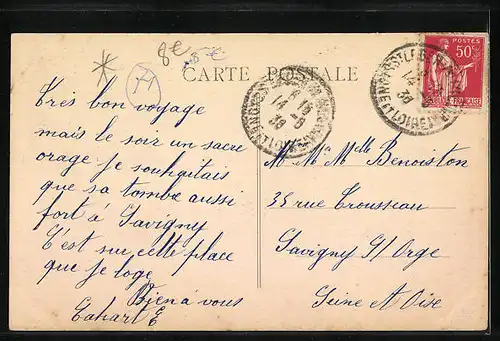 8€ 5€
CARTE POSTALE
POSTES
50c
Très bon voyage
mais le soir un sacré
orage. Je souhaitais
que sa tombe aussi
fort à Savigny
C'est sur cette place
que je loge
Bien à vous
M Me Mlle Benoiston
35 rue Trousseau
Savigny S/ Orge
Seine et Oise